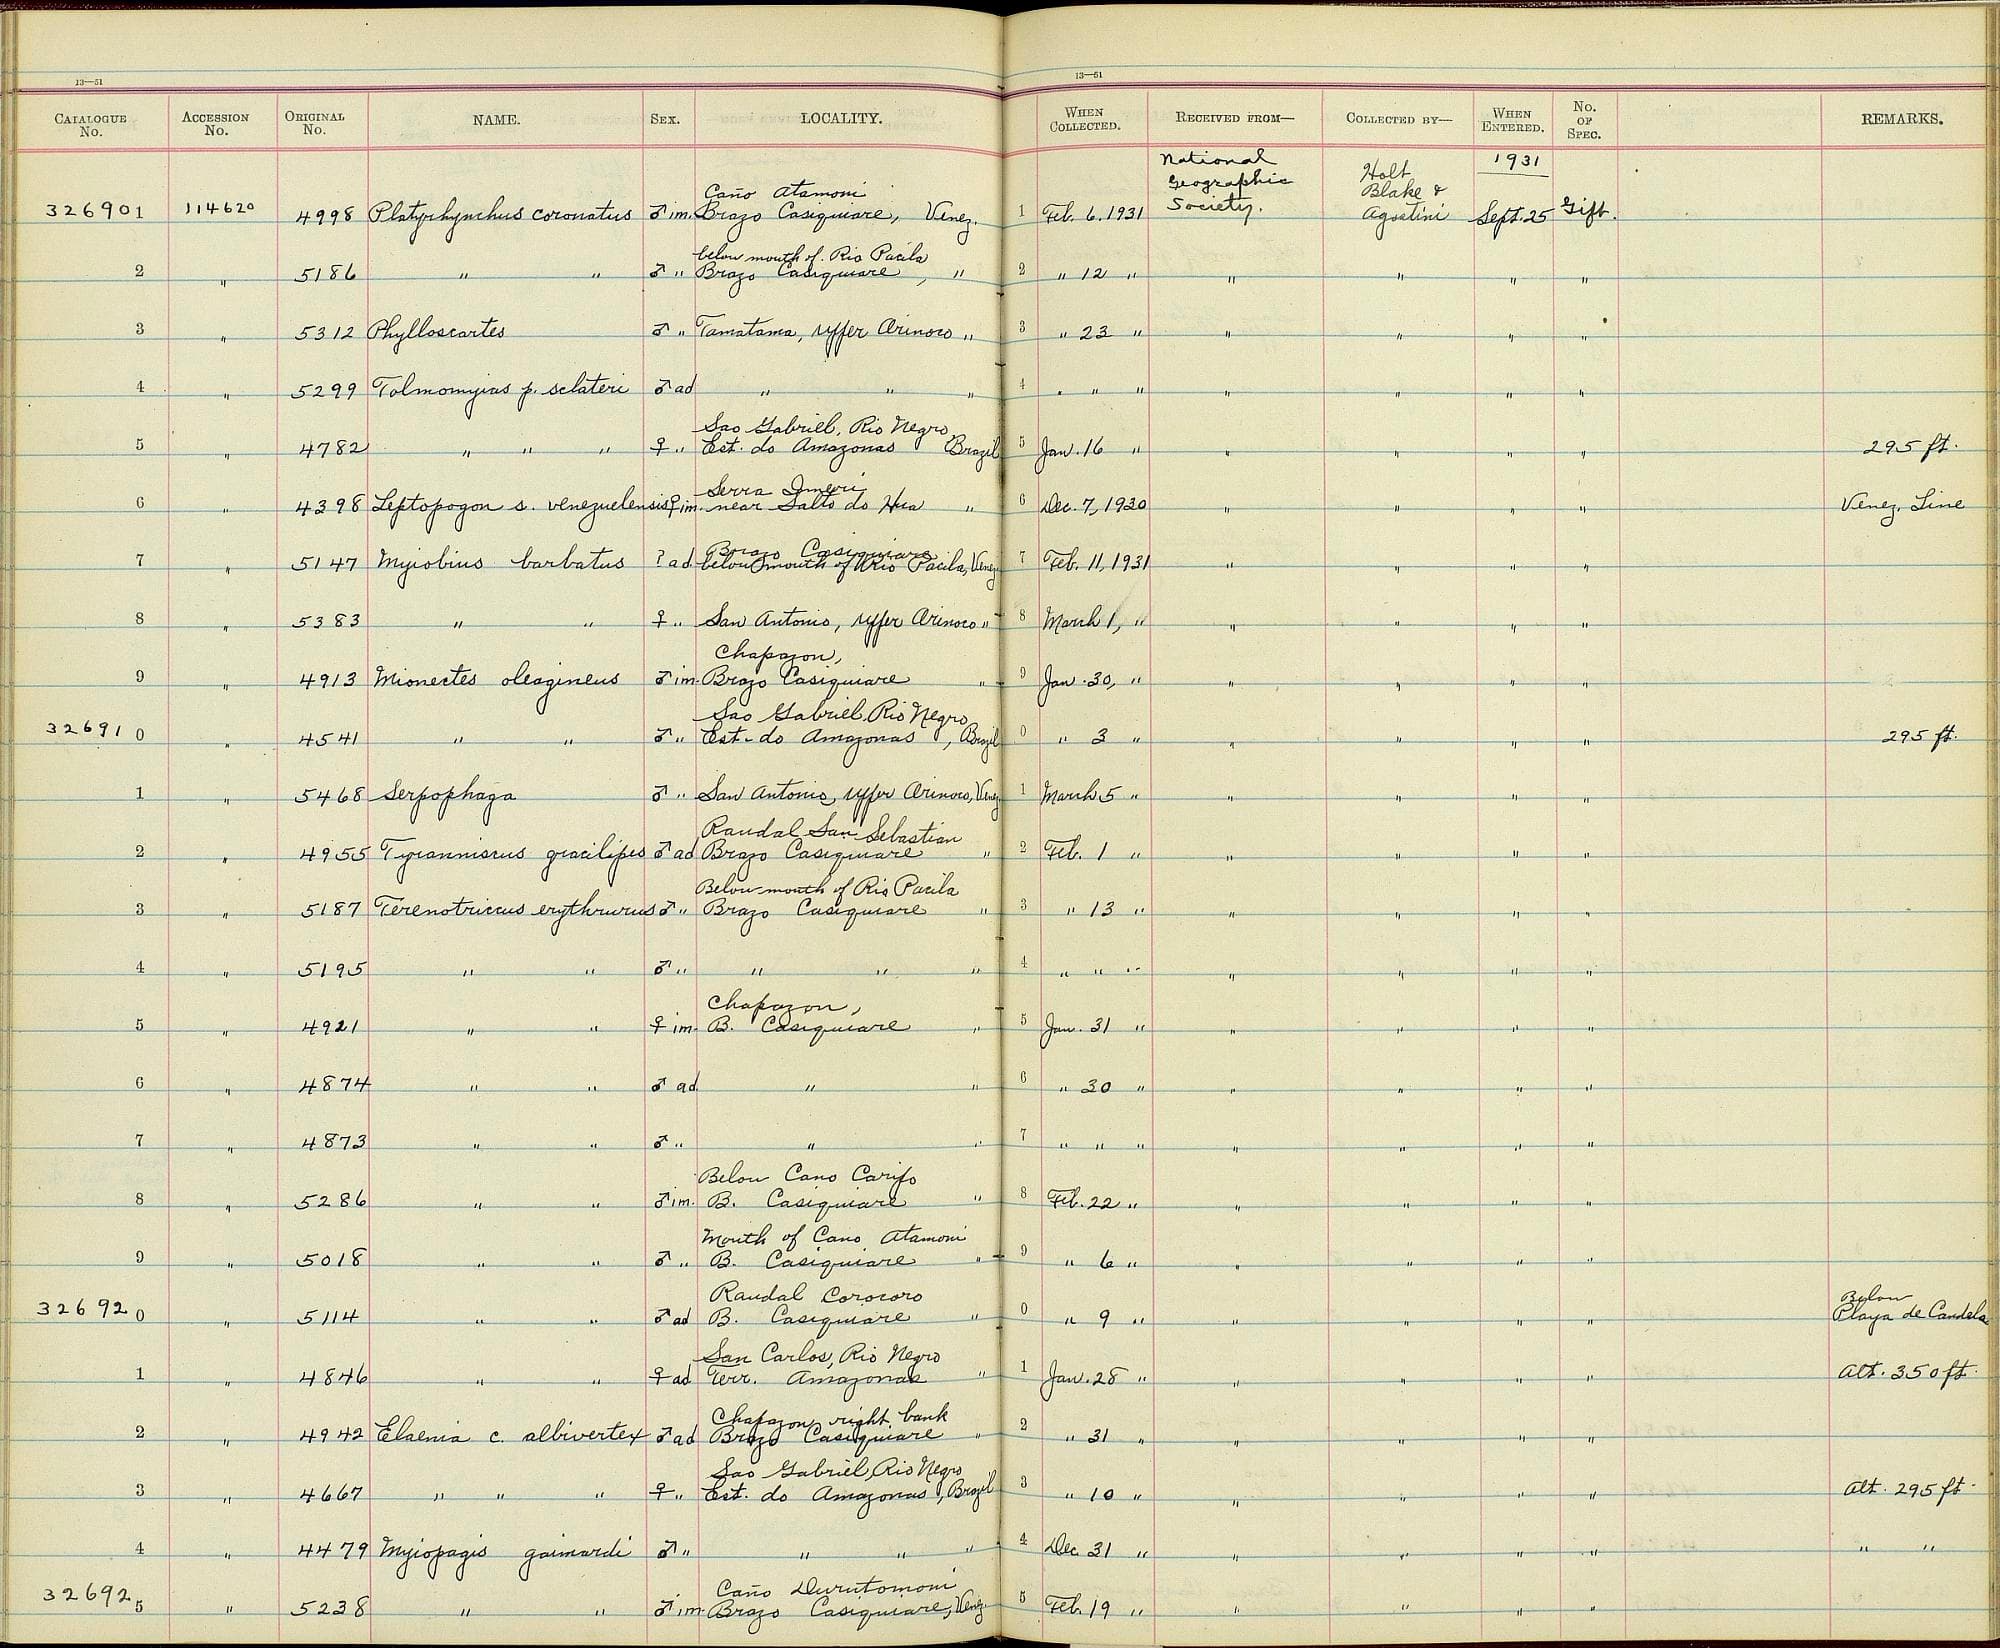 13—51
13—51
CATALOGUE No. ACCESSION No. ORIGINAL No. NAME. SEX. LOCALITY. WHEN COLLECTED. RECEIVED FROM— COLLECTED BY— WHEN ENTERED. No. OF SPEC. REMARKS.
Caño Atamoni National Geographic Society. Holt Blake & Agostini 1931
326901 114620 4998 Platyrhynchus coronatus ♂ im. Brazo Casiquiare, Venez. 1 Feb. 6. 1931 Sept. 25 Gift.
below mouth of Rio Pacila
2 " 5186 " " ♂ " Brazo Casiquiare, " 2 " 12 " " " " "
3 " 5312 Phylloscartes ♂ " Tamatama, upper Orinoco " 3 " 23 " " " " "
4 " 5299 Tolmomyias p. sclateri ♂ ad " " " 4 " " " " " " "
Sao Gabriel, Rio Negro
5 " 4782 " " " ♀ " Est. do Amazonas Brazil 5 Jan. 16 " " " " " 295 ft.
Serra Imeri
6 " 4398 Leptopogon s. venezuelensis ♀ im. near Salto do Hua " 6 Dec. 7, 1930 " " " " Venez. Line
Brazo Casiquiare
7 " 5147 Myiobius barbatus ? ad. below mouth of Rio Pacila, Venez. 7 Feb. 11, 1931 " " " "
8 " 5383 " " ♀ " San Antonio, upper Orinoco " 8 March 1, " " " " "
Chapazon,
9 " 4913 Mionectes oleagineus ♂ im. Brazo Casiquiare " 9 Jan. 30, " " " " "
Sao Gabriel, Rio Negro
326910 " 4541 " " ♂ " Est. do Amazonas, Brazil 0 " 3 " " " " " 295 ft.
1 " 5468 Serpophaga ♂ " San Antonio, upper Orinoco, Venez. 1 March 5 " " " " "
Raudal San Sebastian
2 " 4955 Tyranniscus gracilipes ♂ ad Brazo Casiquiare " 2 Feb. 1 " " " " "
Below mouth of Rio Pacila
3 " 5187 Terenotriccus erythrurus ♂ " Brazo Casiquiare " 3 " 13 " " " " "
4 " 5195 " " ♂ " " " " 4 " " " " " " "
Chapazon,
5 " 4921 " " ♀ im. B. Casiquiare " 5 Jan. 31 " " " " "
6 " 4874 " " ♂ ad " " 6 " 30 " " " " "
7 " 4873 " " ♂ " " " 7 " " " " " " "
Below Cano Caripo
8 " 5286 " " ♂ im. B. Casiquiare " 8 Feb. 22 " " " " "
Mouth of Cano Atamoni
9 " 5018 " " ♂ " B. Casiquiare " 9 " 6 " " " " "
Raudal Corocoro Below
326920 " 5114 " " ♂ ad B. Casiquiare " 0 " 9 " " " " " Playa de Candela
San Carlos, Rio Negro
1 " 4846 " " ♀ ad Terr. Amazonas " 1 Jan. 28 " " " " " Alt. 350 ft.
Chapazon, right bank
2 " 4942 Elaenia c. albivertex ♂ ad Brazo Casiquiare " 2 " 31 " " " " "
Sao Gabriel, Rio Negro
3 " 4667 " " " ♀ " Est. do Amazonas, Brazil 3 " 10 " " " " " Alt. 295 ft.
4 " 4479 Myiopagis gaimardi ♂ " " " " 4 Dec 31 " " " " " " "
Caño Durutomoni
326925 " 5238 " " ♂ im. Brazo Casiquiare, Venez. 5 Feb. 19 " " " " "